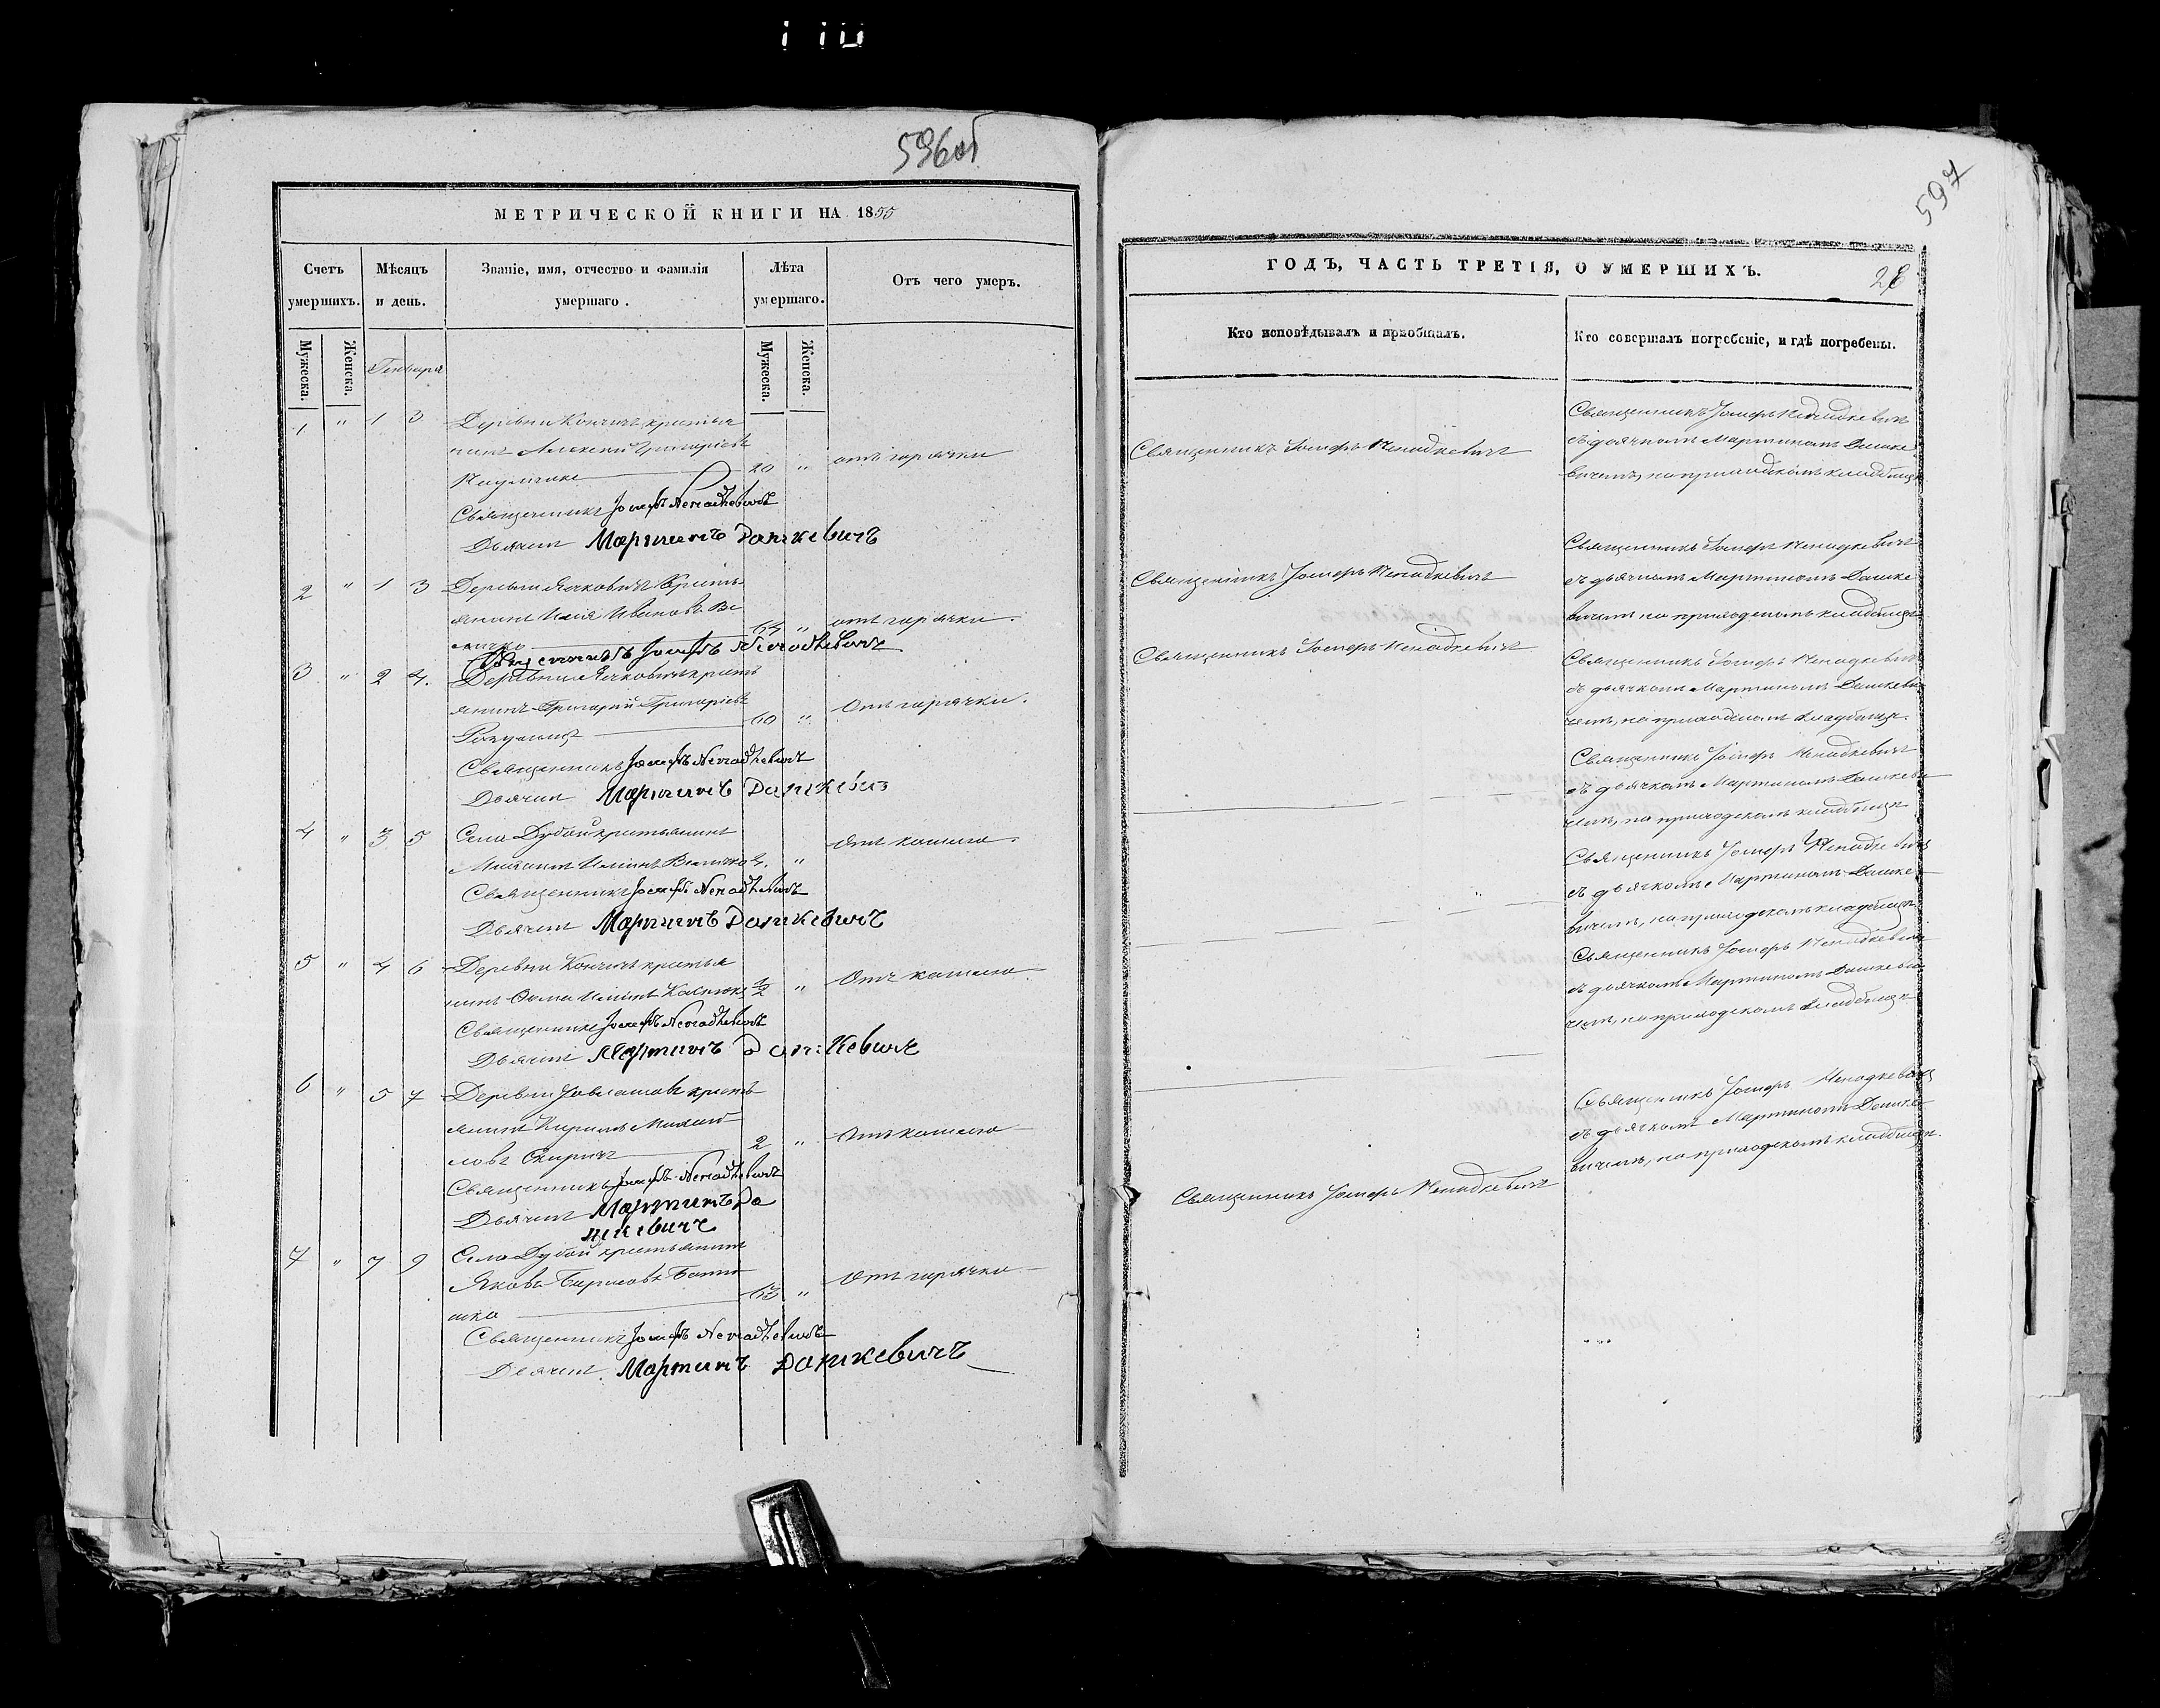 596об
МЕТРИЧЕСКОЙ КНИГИ НА 1855
Счетъ умершихъ.
Мѣсяцъ и день.
Званіе, имя, отчество и фамилія умершаго.
Лѣта умершаго.
Отъ чего умеръ.
Мужеска.
Женска.
Генваря
Мужеска.
Женска.
1 " 1 3 Деревни Кончичъ крестья
нинъ Алексей Григоріевъ
20 " отъ горячки
Священникъ Іосифъ Ненадкевичъ
Дьячекъ Мартинъ Дашкевичъ
2 " 1 3 Деревни Ячковичъ Кресть
янинъ Илія Ивановъ Ве
личко 64 " отъ горячки.
Священникъ Іосифъ Ненадкевичъ
3 " 2 4. Деревни Ячковичъ кресть
янинъ Григорій Григоріевъ
60 " Отъ горячки.
Священникъ Іосифъ Ненадкевичъ
Дьячекъ Мартинъ Дашкевичъ
4 " 3 5 Села Дубой крестьянинъ
Иліинъ Величко 4. " Отъ кашлю.
Священникъ Іосифъ Ненадкевичъ
Дьячекъ Мартинъ Дашкевичъ
5 " 4 6 Деревни Кончичъ крестья
нинъ Ѳома Иліинъ 1/2 " Отъ кашлю
Священникъ Іосифъ Ненадкевичъ
Дьячекъ Мартинъ Дашкевичъ
6 " 5 7 Деревни кресть
янинъ Кирилъ Михай
ловъ 2 " Отъ кашлю
Священникъ Іосифъ Ненадкевичъ
Дьячекъ Мартинъ Да
шкевичъ
7 " 7 9 Села Дубой крестьянинъ
Яковъ Борисовъ
63 " Отъ горячки
Священникъ Іосифъ Ненадкевичъ
Дьячекъ Мартинъ Дашкевичъ
597
ГОДЪ, ЧАСТЬ ТРЕТІЯ, О УМЕРШИХЪ.
Кто исповѣдывалъ и приобщалъ.
Кто совершалъ погребеніе, и гдѣ погребены.
Священникъ Іосифъ Ненадкевичъ
Священникъ Іосифъ Ненадкевичъ
съ дьячкомъ Мартиномъ Дашке
вичемъ, на приходскомъ кладбищѣ
Священникъ Іосифъ Ненадкевичъ
Священникъ Іосифъ Ненадкевичъ
съ дьячкомъ Мартиномъ Дашке
вичемъ на приходскомъ кладбищѣ
Священникъ Іосифъ Ненадкевичъ
Священникъ Іосифъ Ненадкевичъ
съ дьячкомъ Мартиномъ Дашкеви
чемъ, на приходскомъ кладбищѣ.
Священникъ Іосифъ Ненадкевичъ
съ дьячкомъ Мартиномъ Дашкеви
чемъ, на приходскомъ кладбищѣ
Священникъ Іосифъ Ненадкевичъ
съ дьячкомъ Мартиномъ Дашке
вичемъ, на приходскомъ кладбищѣ
Священникъ Іосифъ Ненадкевичъ
съ дьячкомъ Мартиномъ Дашкеви
чемъ, на приходскомъ кладбищѣ
Священникъ Іосифъ Ненадкевичъ
Священникъ Іосифъ Ненадкевичъ
съ дьячкомъ Мартиномъ Дашке
вичемъ, на приходскомъ кладбищѣ.